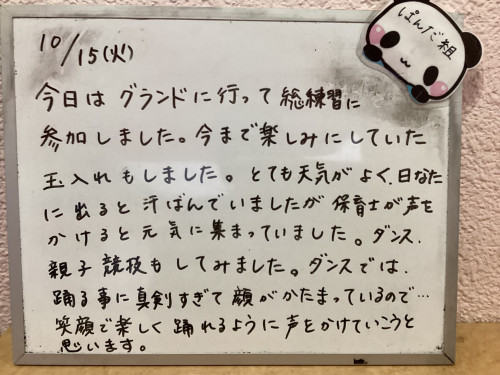 ぱんだ組
10/15(火)
今日は グランドに行って 総練習に
参加しました。今まで楽しみにしていた
玉入れもしました。とても天気がよく、日なた
に出ると汗ばんでいましたが保育士が声を
かけると元気に集まっていました。ダンス、
親子競技もしてみました。ダンスでは、
踊る事に真剣すぎて顔がかたまっているので…
笑顔で楽しく踊れるように声をかけていこうと
思います。